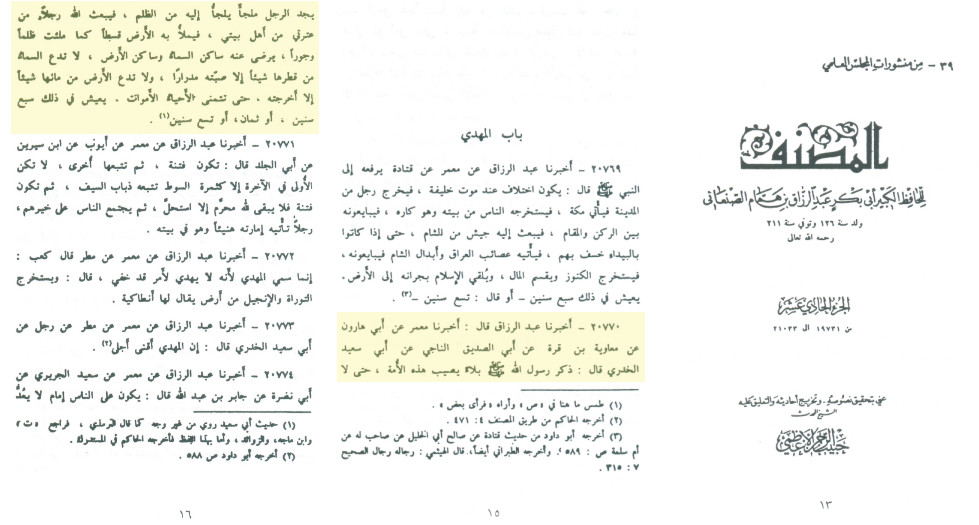 ٣٩ - من منشورات المجلس العلمي
المصنف
للحافظ الكبير أبي بكر عبد الرزاق بن همام الصنعاني
ولد سنة ١٢٦ وتوفي سنة ٢١١
رحمه الله تعالى
الجزء الحادي عشر
من ١٩٧٣١ الى ٢١٠٣٣
عني بتحقيق نصوصه ـ وتخريج أحاديثه والتعليق عليه
الشيخ المحدث
حبيب الرحمن الأعظمي
١٣
باب المهدي
٢٠٧٦٩ - أخبرنا عبد الرزاق عن معمر عن قتادة يرفعه إلى
النبي ﷺ قال : يكون اختلاف عند موت خليفة ، فيخرج رجل من
المدينة فيأتي مكة ، فيستخرجه الناس من بيته وهو كاره ، فيبايعونه
بين الركن والمقام ، فيبعث إليه جيش من الشام ، حتى إذا كانوا
بالبيداء خسف بهم ، فيأتيه عصائب العراق وأبدال الشام فيبايعونه ،
فيستخرج الكنوز ويقسم المال ، ويُلقي الإسلام بجرانه إلى الأرض.
يعيش في ذلك سبع سنين - أو قال : تسع سنين -(٣).
٢٠٧٧٠ - أخبرنا عبد الرزاق قال : أخبرنا معمر عن أبي هارون
عن معاوية بن قرة عن أبي الصديق الناجي عن أبي سعيد
الخدري قال : ذكر رسول الله ﷺ بلاءً يصيب هذه الأُمة ، حتى لا
(١) طمس ما هنا في «ص» وأراه «فرأى بعض» .
(٢) أخرجه الحاكم من طريق المصنف ٤ : ٤٧١ .
(٣) أخرجه أبو داود من حديث قتادة عن صالح أبي الخليل عن صاحب له عن
أم سلمة ص : ٥٨٩ . وأخرجه الطبراني أيضاً، قال الهيثمي : رجاله رجال الصحيح
٧ : ٣١٥ .
١٥
يجد الرجل ملجأً يلجأُ إليه من الظلم ، فيبعث الله رجلاً من
عترتي من أهل بيتي ، فيملأُ به الأَرض قسطاً كما ملئت ظلماً
وجوراً ، يرضى عنه ساكن السماءِ وساكن الأَرض ، لا تدع السماءُ
من قطرها شيئاً إلا صبّته مدرارًا ، ولا تدع الأرض من مائها شيئاً
إلا أخرجته ، حتى تتمنى الأَحياءُ الأَموات . يعيش في ذلك سبع
سنين ، أو ثمان، أو تسع سنين(١) .
٢٠٧٧١ - أخبرنا عبد الرزاق عن معمر عن أيوب عن ابن سيرين
عن أبي الجلد قال : تكون فتنة ، ثم تتبعها أُخرى ، لا تكن
الأُولى في الآخرة إلا كثمرة السوط تتبعه ذباب السيف ، ثم تكون
فتنة فلا يبقى لله محرَّم إلا استحلَّ ، ثم يجتمع الناس على خيرهم ،
رجلاً تأتيه إمارته هنيئاً وهو في بيته .
٢٠٧٧٢ - أخبرنا عبد الرزاق عن معمر عن مطر قال كعب :
إنما سمي المهدي لأنه لا يهدي لأمر قد خفي ، قال : ويستخرج
التوراة والإنجيل من أرض يقال لها أنطاكية .
٢٠٧٧٣ - أخبرنا عبد الرزاق عن معمر عن مطر عن رجل عن
أبي سعيد الخدري قال : إن المهدي أقنى أجلى(٢) .
٢٠٧٧٤ - أخبرنا عبد الرزاق عن معمر عن سعيد الجريري عن
أبي نضرة عن جابر بن عبد الله قال : يكون على الناس إمام لا يعُدُّ
(١) حديث أبي سعيد روي من غير وجه كما قال الترمذي ، فراجع «ت»
وابن ماجه، والزوائد ، وأما بهذا اللفظ فأخرجه الحاكم في المستدرك .
(٢) أخرجه أبو داود ص ٥٨٨ .
١٦